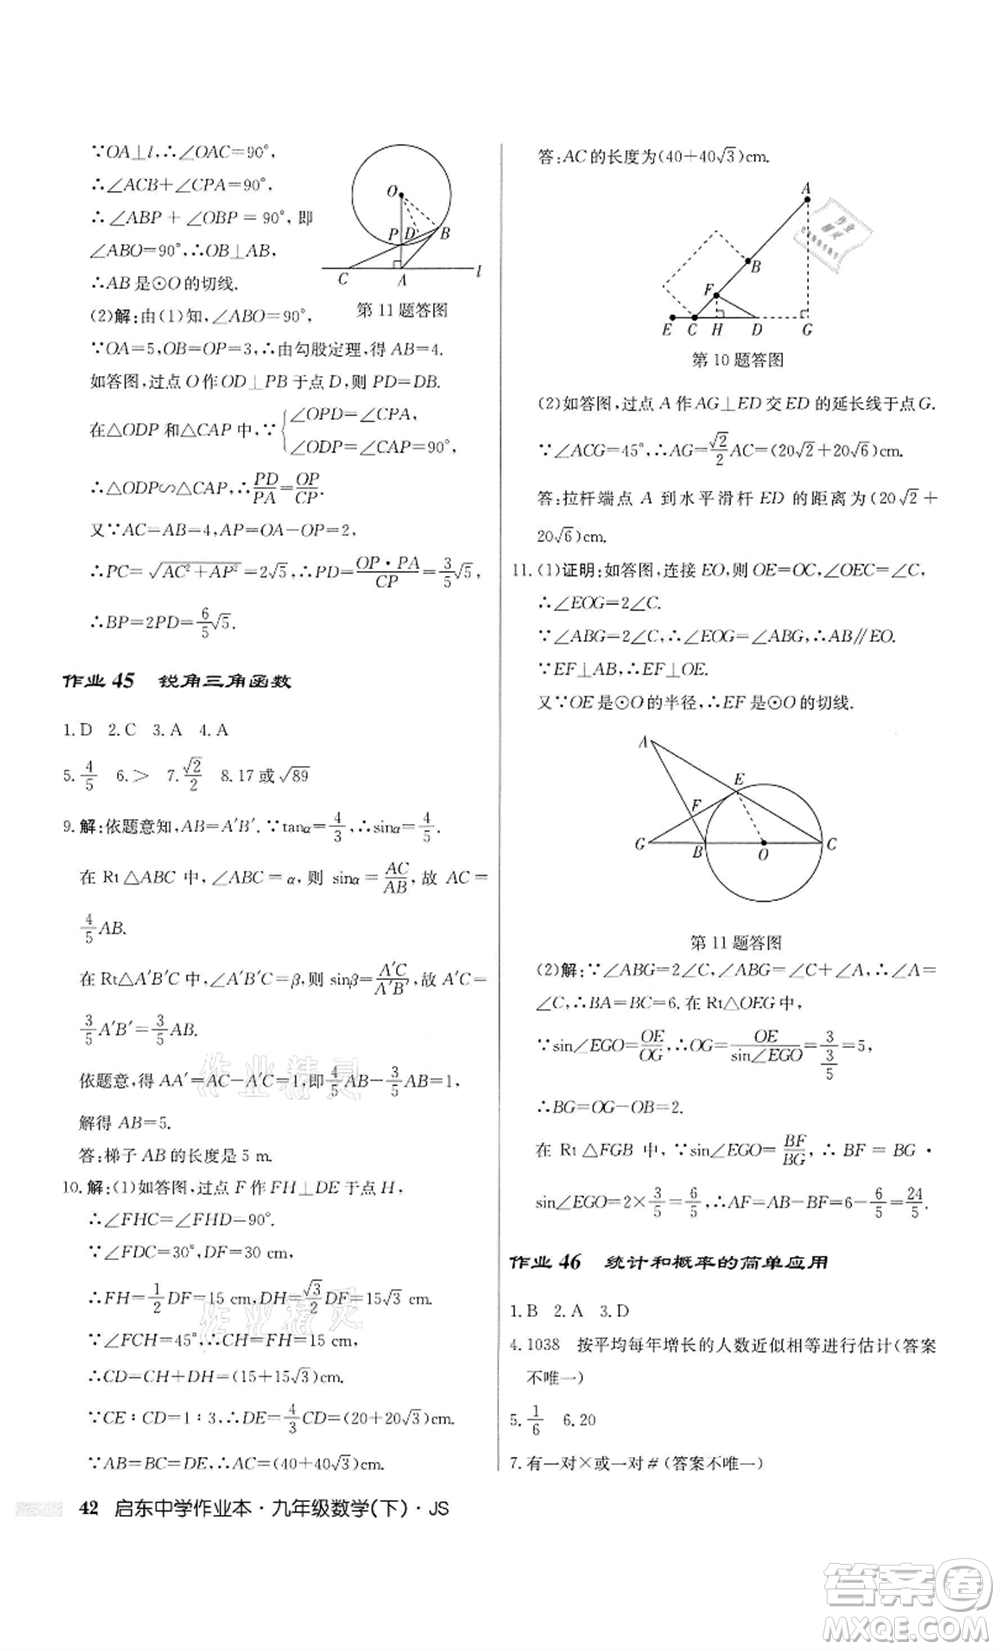 ∵OA⊥l,∴∠OAC=90°,
∴∠ACB+∠CPA=90°.
∴∠ABP+∠OBP=90°,即
∠ABO=90°,∴OB⊥AB,
∴AB是⊙O的切线.
(2)解:由(1)知,∠ABO=90°,
O
P
D
B
C
A
l
第11题答图
∵OA=5,OB=OP=3,∴由勾股定理,得AB=4.
如答图,过点O作OD⊥PB于点D,则PD=DB.
在△ODP和△CAP中,∵{∠OPD=∠CPA,
∠ODP=∠CAP=90°,
∴△ODP∽△CAP,∴PD/PA=OP/CP.
又∵AC=AB=4,AP=OA-OP=2,
∴PC=√(AC²+AP²)=2√5,∴PD=OP·PA/CP=3/5√5,
∴BP=2PD=6/5√5.
作业45 锐角三角函数
1.D 2.C 3.A 4.A
5.4/5 6.> 7.√2/2 8.17或√89
9.解:依题意知,AB=A′B′.∵tanα=4/3,∴sinα=4/5.
在Rt△ABC中,∠ABC=α,则sinα=AC/AB,故AC=
4/5AB.
在Rt△A′B′C中,∠A′B′C=β,则sinβ=A′C/A′B′,故A′C=
3/5A′B′=3/5AB.
依题意,得AA′=AC-A′C=1,即4/5AB-3/5AB=1,
解得AB=5.
答:梯子AB的长度是5 m.
10.解:(1)如答图,过点F作FH⊥DE于点H,
∴∠FHC=∠FHD=90°.
∵∠FDC=30°,DF=30 cm,
∴FH=1/2DF=15 cm,DH=√3/2DF=15√3 cm.
∵∠FCH=45°,∴CH=FH=15 cm,
∴CD=CH+DH=(15+15√3)cm.
∵CE∶CD=1∶3,∴DE=4/3CD=(20+20√3)cm.
∵AB=BC=DE,
42 启东中学作业本·九年级数学(下)·JS
答:AC的长度为(40+40√3)cm.
A
B
F
E
C
H
D
G
作业精灵
第10题答图
(2)如答图,过点A作AG⊥ED交ED的延长线于点G.
∵∠ACG=45°,∴AG=√2/2AC=(20√2+20√6)cm.
答:拉杆端点A到水平滑杆ED的距离为(20√2+
20√6)cm.
11.(1)证明:如答图,连接EO,则OE=OC,∠OEC=∠C,
∴∠EOG=2∠C.
∵∠ABG=2∠C,∴∠EOG=∠ABG,∴AB∥EO.
∵EF⊥AB,∴EF⊥OE.
又∵OE是⊙O的半径,∴EF是⊙O的切线.
A
E
F
G
B
O
C
第11题答图
(2)解:∵∠ABG=2∠C,∠ABG=∠C+∠A,∴∠A=
∠C,∴BA=BC=6.在Rt△OEG中,
∵sin∠EGO=OE/OG,∴OG=OE/sin∠EGO=3/(3/5)=5,
∴BG=OG-OB=2.
在Rt△FGB中,∵sin∠EGO=BF/BG,∴BF=BG·
sin∠EGO=2×3/5=6/5,∴AF=AB-BF=6-6/5=24/5.
作业46 统计和概率的简单应用
1.B 2.A 3.D
4.1038 按平均每年增长的人数近似相等进行估计(答案
不唯一)
5.1/6 6.20
7.有一对×或一对#(答案不唯一)
作业精灵
作业精灵
答案卷
MXQE.COM